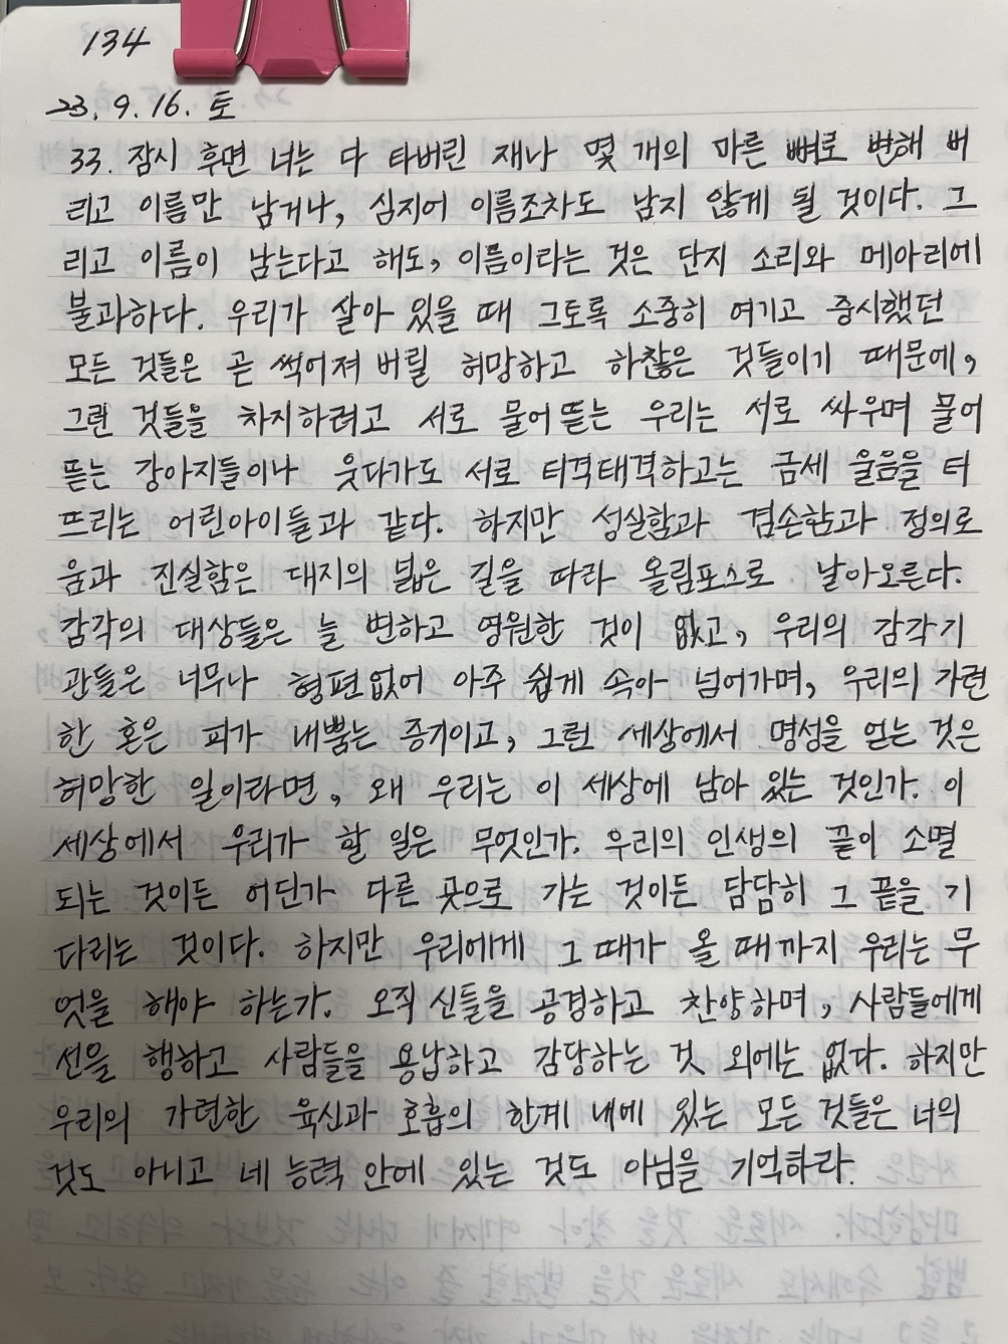 134
23. 9. 16. 토
33. 잠시 후면 너는 다 타버린 재나 몇 개의 마른 뼈로 변해 버
리고 이름만 남거나, 심지어 이름조차도 남지 않게 될 것이다. 그
리고 이름이 남는다고 해도, 이름이라는 것은 단지 소리와 메아리에
불과하다. 우리가 살아 있을 때 그토록 소중히 여기고 중시했던
모든 것들은 곧 썩어져 버릴 허망하고 하찮은 것들이기 때문에,
그런 것들을 차지하려고 서로 물어 뜯는 우리는 서로 싸우며 물어
뜯는 강아지들이나 웃다가도 서로 티격태격하고는 금세 울음을 터
뜨리는 어린아이들과 같다. 하지만 성실함과 겸손함과 정의로
움과 진실함은 대지의 넓은 길을 따라 올림포스로 날아오른다.
감각의 대상들은 늘 변하고 영원한 것이 없고, 우리의 감각기
관들은 너무나 형편없어 아주 쉽게 속아 넘어가며, 우리의 가련
한 혼은 피가 내뿜는 증기이고, 그런 세상에서 명성을 얻는 것은
허망한 일이라면, 왜 우리는 이 세상에 남아 있는 것인가. 이
세상에서 우리가 할 일은 무엇인가. 우리의 인생의 끝이 소멸
되는 것이든 어딘가 다른 곳으로 가는 것이든 담담히 그 끝을 기
다리는 것이다. 하지만 우리에게 그 때가 올 때까지 우리는 무
엇을 해야 하는가. 오직 신들을 공경하고 찬양하며, 사람들에게
선을 행하고 사람들을 용납하고 감당하는 것 외에는 없다. 하지만
우리의 가련한 육신과 호흡의 한계 내에 있는 모든 것들은 너의
것도 아니고 네 능력 안에 있는 것도 아님을 기억하라.